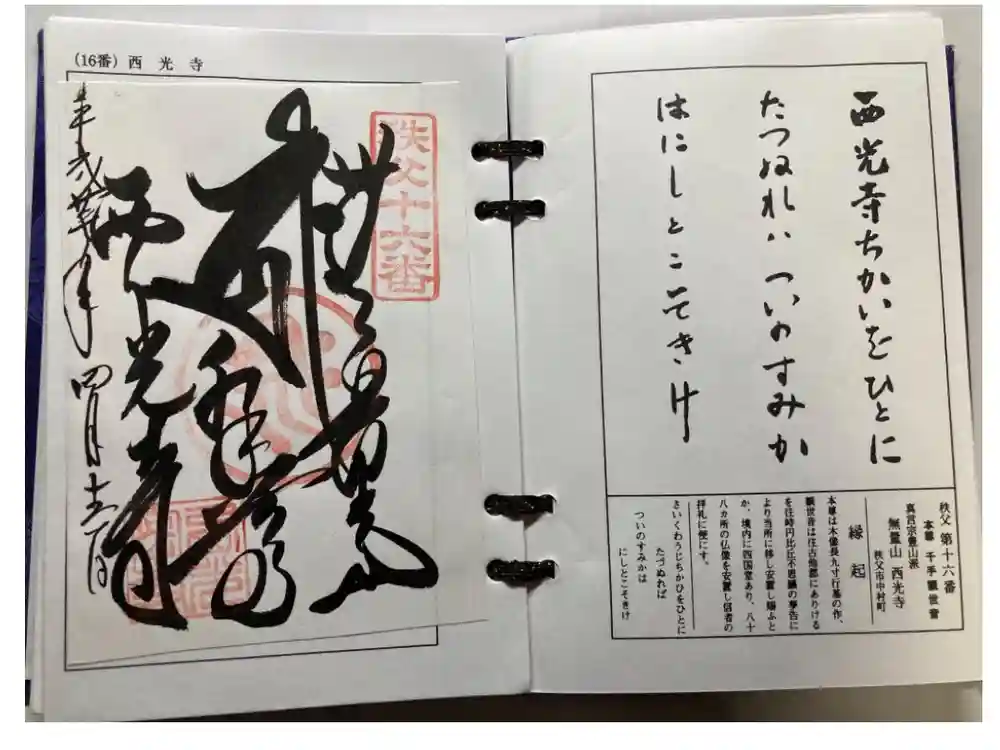 (16番) 西光寺
秩父十六番
西光寺
四月
西光寺ちかいをひとに
たつぬれハ ついのすみか
はにしとこそきけ
秩父 第十六番
本尊 千手観世音
真言宗豊山派
無量山 西光寺
秩父市中村町
縁起
本尊は木像長九寸行基の作、
観世音は往古他郡にありける
を往時円比丘不思議の夢告に
より当所に移し安置し賜ふと
か、境内に四国堂あり、八十
八カ所の仏像を安置し信者の
拝礼に便にす。
さいくわうじちかひをひとに
たづぬれば
ついのすみかは
にしとこそきけ